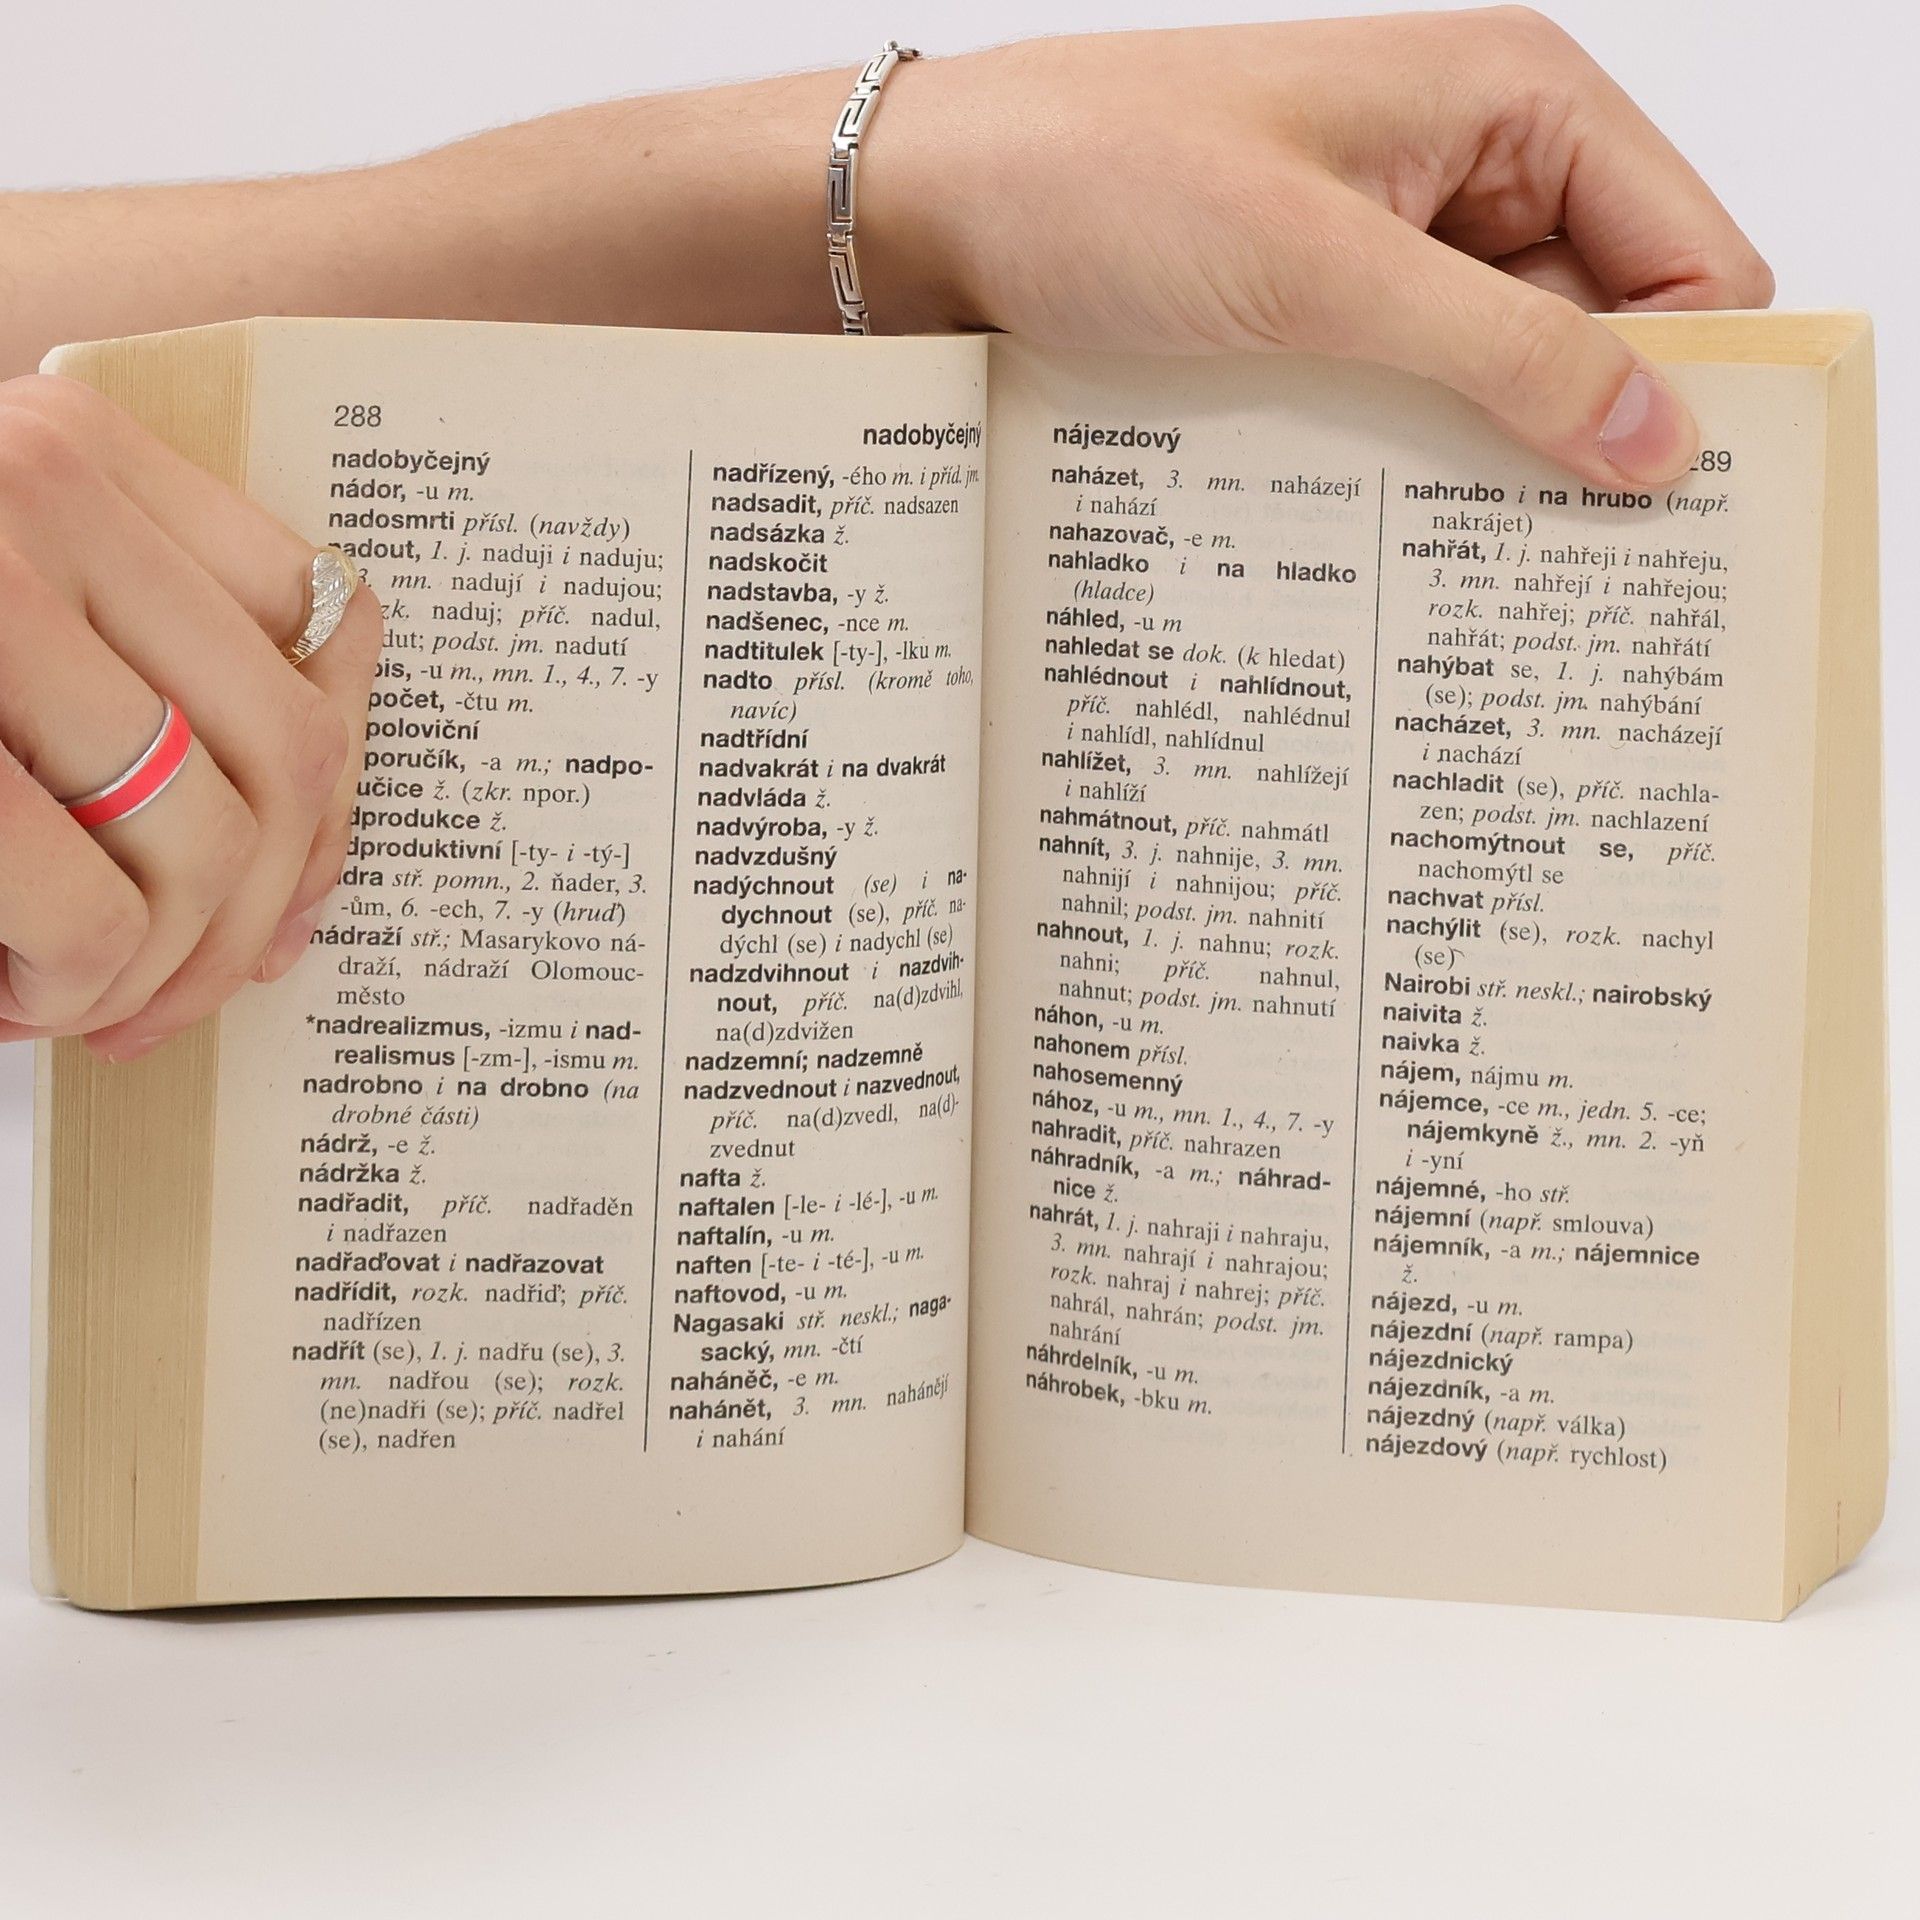 288
nadobyčejný
nadobyčejný
nádor, -u m.
nadosmrti přísl. (navždy)
nadout, 1. j. naduji i naduju;
3. mn. nadují i nadujou;
naduj; příč. nadul,
podst. jm. nadutí
-u m., mn. 1., 4., 7. -y
-čtu m.
poloviční
poručík, -a m.; nadpo-
učice ž. (zkr. npor.)
dprodukce ž.
dproduktivní [-ty- i -tý-]
stř. pomn., 2. ňader, 3.
-ům, 6. -ech, 7. -y (hruď)
nádraží stř.; Masarykovo ná-
draží, nádraží Olomouc-
město
*nadrealizmus, -izmu i nad-
realismus [-zm-], -ismu m.
nadrobno i na drobno (na
drobné části)
nádrž, -e ž.
nádržka ž.
nadřadit, příč. nadřaděn
i nadřazen
nadřaďovat i nadřazovat
nadřídit, rozk. nadřiď; příč.
nadřízen
nadřít (se), 1. j. nadřu (se), 3.
mn. nadřou (se); rozk.
(ne)nadři (se); příč. nadřel
(se), nadřen
nadřízený, -ého m. i příd. jm.
nadsadit, příč. nadsazen
nadsázka ž.
nadskočit
nadstavba, -y ž.
nadšenec, -nce m.
nadtitulek [-ty-], -lku m.
nadto přísl. (kromě toho,
navíc)
nadtřídní
nadvakrát i na dvakrát
nadvláda ž.
nadvýroba, -y ž.
nadvzdušný
nadýchnout (se) i na-
dychnout (se), příč. na-
dýchl (se) i nadychl (se)
nadzdvihnout i nazdvih-
nout, příč. na(d)zdvihl,
na(d)zdvižen
nadzemní; nadzemně
nadzvednout i nazvednout,
příč. na(d)zvedl, na(d)-
zvednut
nafta ž.
naftalen [-le- i -lé-], -u m.
naftalín, -u m.
naften [-te- i -té-], -u m.
naftovod, -u m.
Nagasaki stř. neskl.; naga-
sacký, mn. -čtí
naháněč, -e m.
nahánět, 3. mn. nahánějí
i nahání
nájezdový
289
naházet, 3. mn. naházejí
i nahází
nahazovač, -e m.
nahladko i na hladko
(hladce)
náhled, -u m
nahledat se dok. (k hledat)
nahlédnout i nahlídnout,
příč. nahlédl, nahlédnul
i nahlídl, nahlídnul
nahlížet, 3. mn. nahlížejí
i nahlíží
nahmátnout, příč. nahmátl
nahnít, 3. j. nahnije, 3. mn.
nahnijí i nahnijou; příč.
nahnil; podst. jm. nahnití
nahnout, 1. j. nahnu; rozk.
nahni; příč. nahnul,
nahnut; podst. jm. nahnutí
náhon, -u m.
nahonem přísl.
nahosemenný
nához, -u m., mn. 1., 4., 7. -y
nahradit, příč. nahrazen
náhradník, -a m.; náhrad-
nice ž.
nahrát, 1. j. nahraji i nahraju,
3. mn. nahrají i nahrajou;
rozk. nahraj i nahrej; příč.
nahrál, nahrán; podst. jm.
nahrání
náhrdelník, -u m.
náhrobek, -bku m.
nahrubo i na hrubo (např.
nakrájet)
nahřát, 1. j. nahřeji i nahřeju,
3. mn. nahřejí i nahřejou;
rozk. nahřej; příč. nahřál,
nahřát; podst. jm. nahřátí
nahýbat se, 1. j. nahýbám
(se); podst. jm. nahýbání
nacházet, 3. mn. nacházejí
i nachází
nachladit (se), příč. nachla-
zen; podst. jm. nachlazení
nachomýtnout se, příč.
nachomýtl se
nachvat přísl.
nachýlit (se), rozk. nachyl
(se)
Nairobi stř. neskl.; nairobský
naivita ž.
naivka ž.
nájem, nájmu m.
nájemce, -ce m., jedn. 5. -ce;
nájemkyně ž., mn. 2. -yň
i -yní
nájemné, -ho stř.
nájemní (např. smlouva)
nájemník, -a m.; nájemnice
ž.
nájezd, -u m.
nájezdní (např. rampa)
nájezdnický
nájezdník, -a m.
nájezdný (např. válka)
nájezdový (např. rychlost)